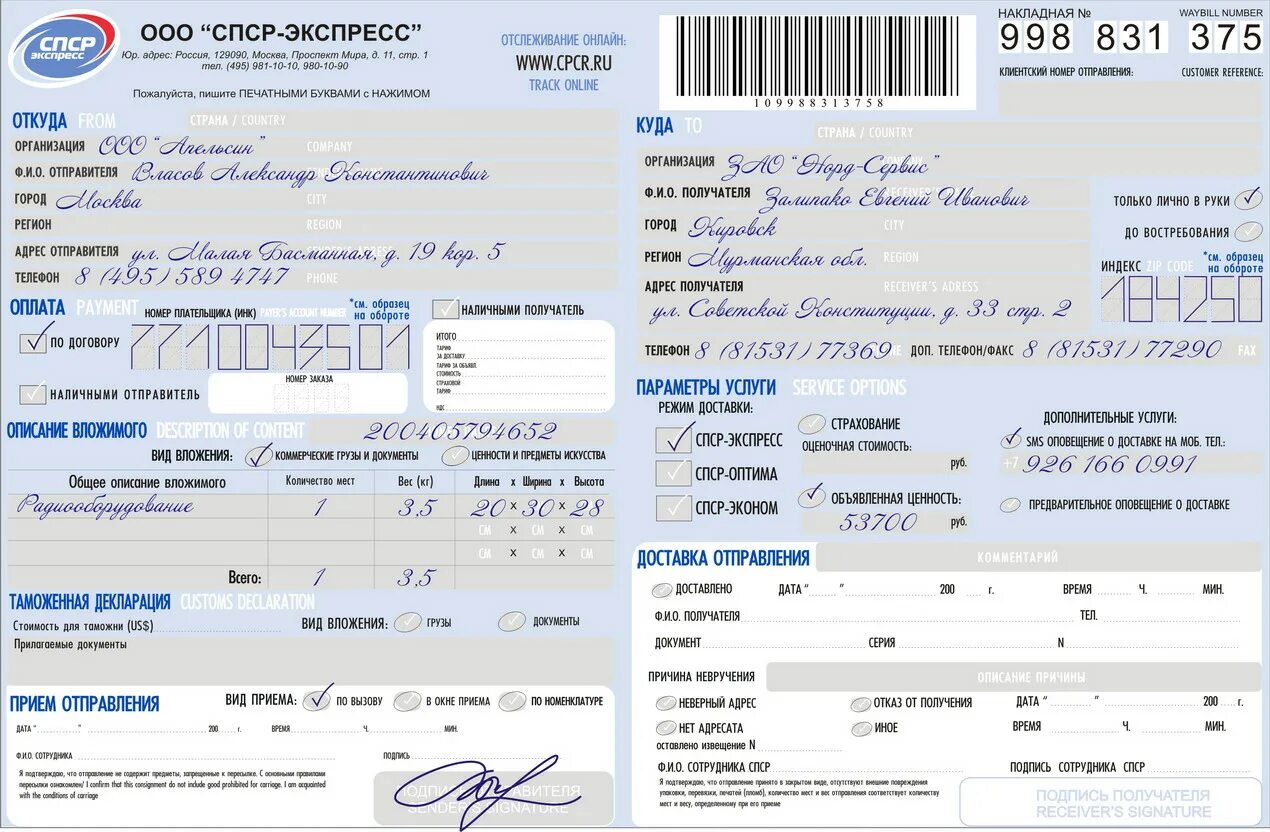 СПСР
ЭКСПРЕСС
ООО “СПСР-ЭКСПРЕСС”
Юр. адрес: Россия, 129090, Москва, Проспект Мира, д. 11, стр. 1
тел. (495) 981-10-10, 980-10-90
Пожалуйста, пишите ПЕЧАТНЫМИ БУКВАМИ с НАЖИМОМ
ОТСЛЕЖИВАНИЕ ОНЛАЙН:
WWW.CPCR.RU
TRACK ONLINE
109988313758
НАКЛАДНАЯ № WAYBILL NUMBER
998 831 375
КЛИЕНТСКИЙ НОМЕР ОТПРАВЛЕНИЯ: CUSTOMER REFERENCE:
ОТКУДА FROM СТРАНА / COUNTRY
ОРГАНИЗАЦИЯ ООО “Апельсин” COMPANY
Ф.И.О. ОТПРАВИТЕЛЯ Власов Александр Константинович
ГОРОД Москва CITY
РЕГИОН REGION
АДРЕС ОТПРАВИТЕЛЯ ул. Малая Басманная, д. 19 кор. 5 SENDER'S ADRESS
ТЕЛЕФОН 8 (495) 589 4747 PHONE
КУДА TO СТРАНА / COUNTRY
ОРГАНИЗАЦИЯ ЗАО “Норд-Сервис”
Ф.И.О. ПОЛУЧАТЕЛЯ Залипако Евгений Иванович
ГОРОД Кировск CITY
РЕГИОН Мурманская обл. REGION
АДРЕС ПОЛУЧАТЕЛЯ RECEIVER'S ADRESS
ул. Советской Конституции, д. 33 стр. 2
ТЕЛЕФОН 8 (81531) 77369 ДОП. ТЕЛЕФОН/ФАКС 8 (81531) 77290 FAX
ТОЛЬКО ЛИЧНО В РУКИ
ДО ВОСТРЕБОВАНИЯ
ИНДЕКС ZIP CODE *см. образец на обороте
184250
ОПЛАТА PAYMENT НОМЕР ПЛАТЕЛЬЩИКА (ИНК) PAYER'S ACCOUNT NUMBER *см. образец на обороте
ПО ДОГОВОРУ 7710043501
НАЛИЧНЫМИ ОТПРАВИТЕЛЬ
НОМЕР ЗАКАЗА
НАЛИЧНЫМИ ПОЛУЧАТЕЛЬ
ИТОГО
ТАРИФ
ЗА ДОСТАВКУ
ТАРИФ ЗА ОБЪЯВЛ.
СТОИМОСТЬ
СТРАХОВОЙ
ТАРИФ
НДС
ОПИСАНИЕ ВЛОЖИМОГО DESCRIPTION OF CONTENT 200405794652
ВИД ВЛОЖЕНИЯ: КОММЕРЧЕСКИЕ ГРУЗЫ И ДОКУМЕНТЫ ЦЕННОСТИ И ПРЕДМЕТЫ ИСКУССТВА
Общее описание вложимого Количество мест Вес (кг) Длина x Ширина x Высота
Радиооборудование 1 3,5 20 x 30 x 28
СМ x СМ x СМ
СМ x СМ x СМ
Всего: 1 3,5
ТАМОЖЕННАЯ ДЕКЛАРАЦИЯ CUSTOMS DECLARATION
Стоимость для таможни (US$) ВИД ВЛОЖЕНИЯ: ГРУЗЫ ДОКУМЕНТЫ
Прилагаемые документы
ПРИЕМ ОТПРАВЛЕНИЯ ВИД ПРИЕМА: ПО ВЫЗОВУ В ОКНЕ ПРИЕМА ПО НОМЕНКЛАТУРЕ
ДАТА “ ” 200 г. ВРЕМЯ Ч. МИН.
Ф.И.О. СОТРУДНИКА ПОДПИСЬ
Я подтверждаю, что отправление не содержит предметы, запрещенные к пересылке. С основными правилами
пересылки ознакомлен/ I confirm that this consignment do not include good prohibited for carriage. I am acquainted
with the conditions of carriage
ПОДПИСЬ ОТПРАВИТЕЛЯ
SENDER'S SIGNATURE
ПАРАМЕТРЫ УСЛУГИ SERVICE OPTIONS
РЕЖИМ ДОСТАВКИ:
СПСР-ЭКСПРЕСС
СПСР-ОПТИМА
СПСР-ЭКОНОМ
СТРАХОВАНИЕ
ОЦЕНОЧНАЯ СТОИМОСТЬ:
руб.
ОБЪЯВЛЕННАЯ ЦЕННОСТЬ:
53700 руб.
ДОПОЛНИТЕЛЬНЫЕ УСЛУГИ:
SMS ОПОВЕЩЕНИЕ О ДОСТАВКЕ НА МОБ. ТЕЛ.:
+7 926 166 0991
ПРЕДВАРИТЕЛЬНОЕ ОПОВЕЩЕНИЕ О ДОСТАВКЕ
ДОСТАВКА ОТПРАВЛЕНИЯ КОММЕНТАРИЙ
ДОСТАВЛЕНО ДАТА “ ” 200 г. ВРЕМЯ Ч. МИН.
Ф.И.О. ПОЛУЧАТЕЛЯ ТЕЛ.
ДОКУМЕНТ СЕРИЯ N
ПРИЧИНА НЕВРУЧЕНИЯ ОПИСАНИЕ ПРИЧИНЫ
НЕВЕРНЫЙ АДРЕС ОТКАЗ ОТ ПОЛУЧЕНИЯ ДАТА “ ” 200 г.
НЕТ АДРЕСАТА ИНОЕ ВРЕМЯ Ч. МИН.
оставлено извещение N
Ф.И.О. СОТРУДНИКА СПСР ПОДПИСЬ СОТРУДНИКА СПСР
Я подтверждаю, что отправление принято в закрытом виде, отсутствуют внешние повреждения
упаковки, перевязки, печатей (пломб), количество мест и вес отправления соответствует количеству
мест и весу, определенному при его приеме
ПОДПИСЬ ПОЛУЧАТЕЛЯ
RECEIVER'S SIGNATURE